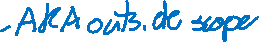 - AKA outs.de scope